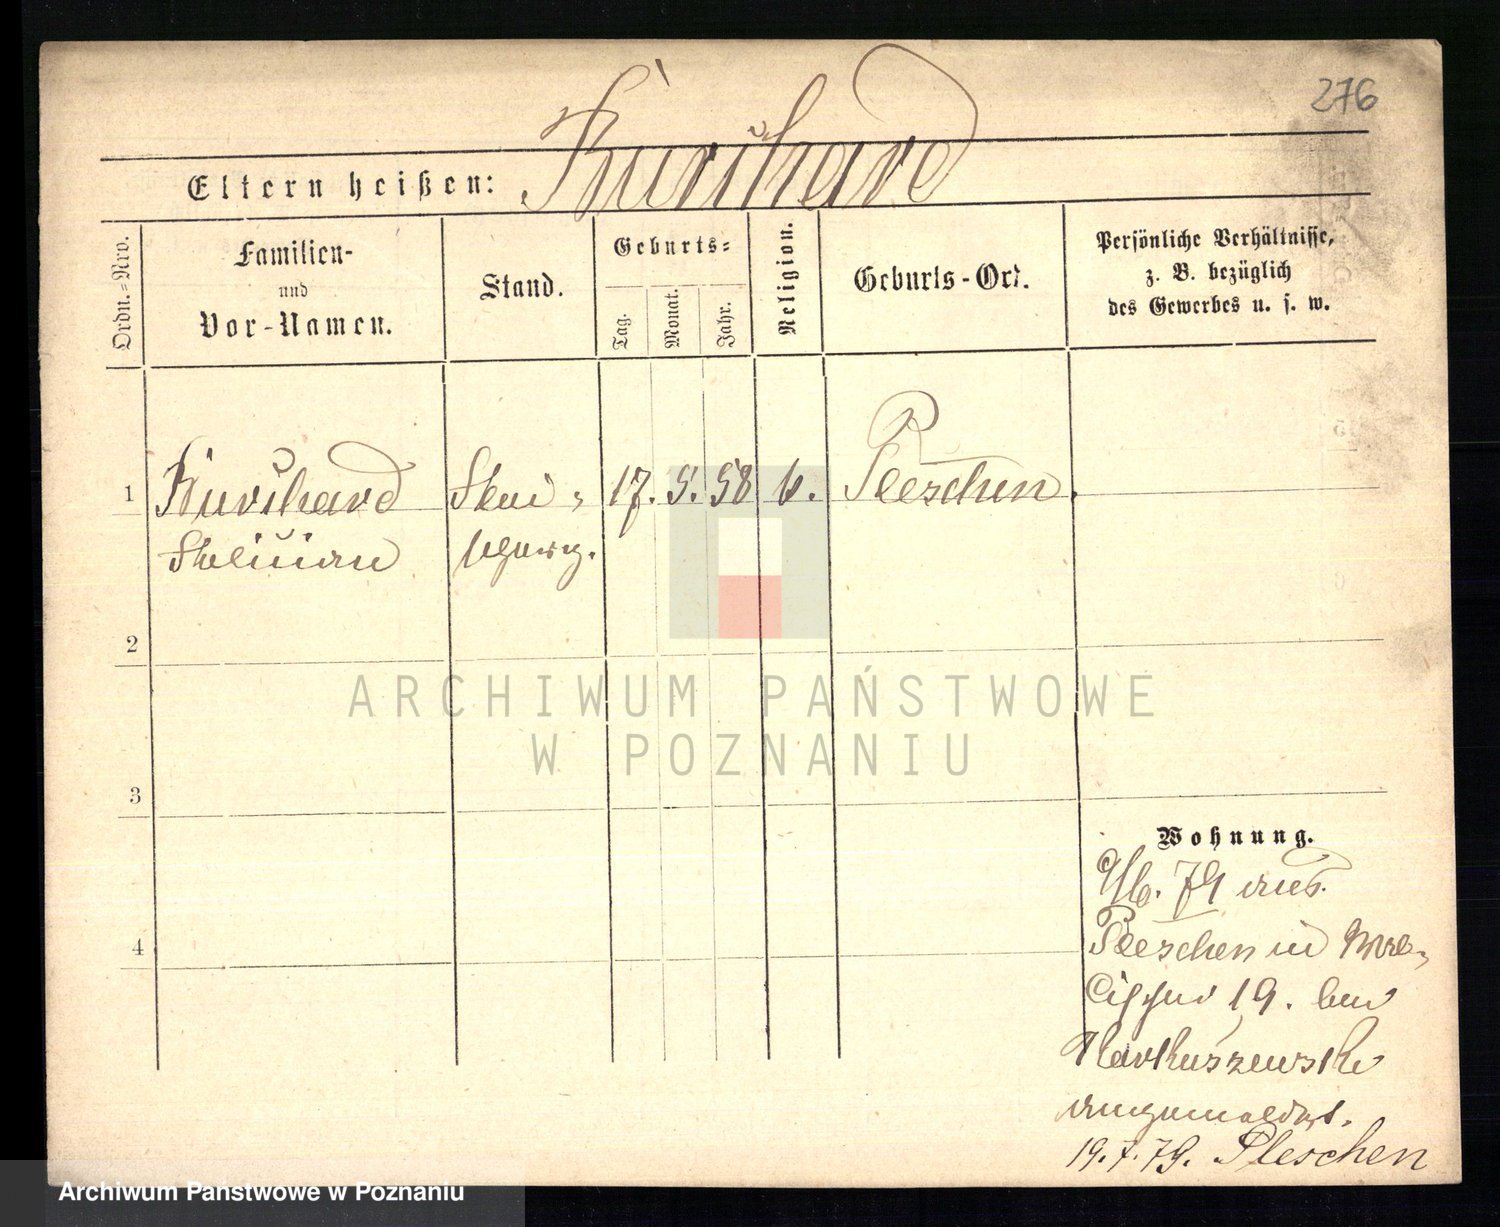 276
Eltern heißen: Kurihard
Ordn.-Nro.
Familien-
und
Vor-Namen.
Stand.
Geburts-
Tag.
Monat.
Jahr.
Religion.
Geburts-Ort.
Persönliche Verhältnisse,
z. B. bezüglich
des Gewerbes u. s. w.
1
Kurihard
17. 5. 58
Pleschen.
2
3
4
Wohnung.
79 aus
Pleschen in
19. bei
angemeldet.
19. 7. 79. Pleschen
ARCHIWUM PAŃSTWOWE
W POZNANIU
Archiwum Państwowe w Poznaniu